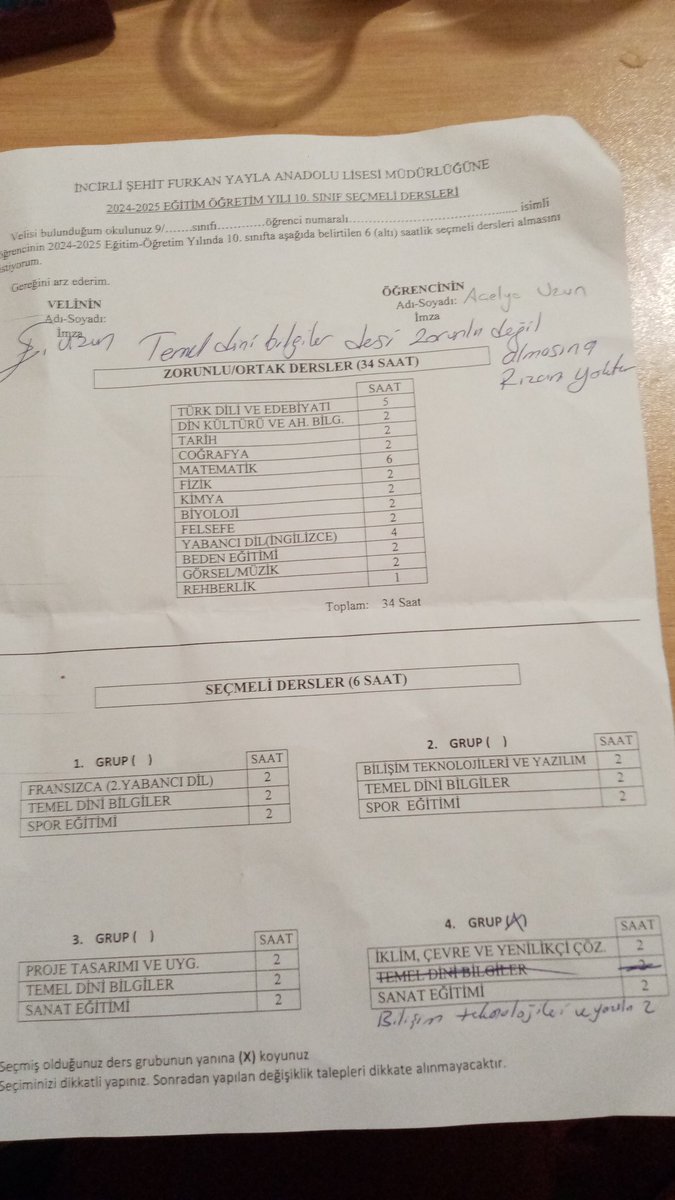 İNCİRLİ ŞEHİT FURKAN YAYLA ANADOLU LİSESİ MÜDÜRLÜĞÜNE
2024-2025 EĞİTİM ÖĞRETİM YILI 10. SINIF SEÇMELİ DERSLERİ
Velisi bulunduğum okulunuz 9/.......sınıfı............öğrenci numaralı............................................. isimli
öğrencinin 2024-2025 Eğitim-Öğretim Yılında 10. sınıfta aşağıda belirtilen 6 (altı) saatlik seçmeli dersleri almasını
istiyorum.
Gereğini arz ederim.
VELİNİN
Adı-Soyadı:
İmza
Uzun
ÖĞRENCİNİN
Adı-Soyadı: Acelya Uzun
İmza
Temel dini bilgiler desi zorunlu değil
almasına
Rızam yoktur
ZORUNLU/ORTAK DERSLER (34 SAAT)
SAAT
TÜRK DİLİ VE EDEBİYATI 5
DİN KÜLTÜRÜ VE AH. BİLG. 2
TARİH 2
COĞRAFYA 2
MATEMATİK 6
FİZİK 2
KİMYA 2
BİYOLOJİ 2
FELSEFE 2
YABANCI DİL(İNGİLİZCE) 4
BEDEN EĞİTİMİ 2
GÖRSEL/MÜZİK 2
REHBERLİK 1
Toplam: 34 Saat
SEÇMELİ DERSLER (6 SAAT)
1. GRUP ( ) SAAT
FRANSIZCA (2.YABANCI DİL) 2
TEMEL DİNİ BİLGİLER 2
SPOR EĞİTİMİ 2
2. GRUP ( ) SAAT
BİLİŞİM TEKNOLOJİLERİ VE YAZILIM 2
TEMEL DİNİ BİLGİLER 2
SPOR EĞİTİMİ 2
3. GRUP ( ) SAAT
PROJE TASARIMI VE UYG. 2
TEMEL DİNİ BİLGİLER 2
SANAT EĞİTİMİ 2
4. GRUP (X) SAAT
İKLİM, ÇEVRE VE YENİLİKÇİ ÇÖZ. 2
TEMEL DİNİ BİLGİLER 2
SANAT EĞİTİMİ 2
Bilişim teknolojileri ve 2
Seçmiş olduğunuz ders grubunun yanına (X) koyunuz
Seçiminizi dikkatli yapınız. Sonradan yapılan değişiklik talepleri dikkate alınmayacaktır.